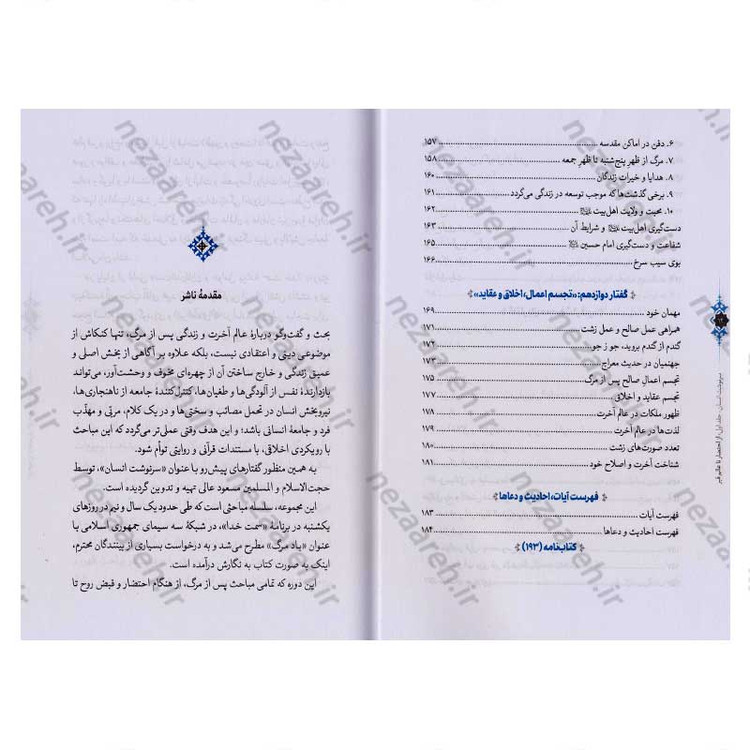 ۶. دفن در اماکن مقدسه ۱۵۷
۷. مرگ از ظهرِ پنج‌شنبه تا ظهرِ جمعه ۱۵۸
۸. هدایا و خیرات زندگان ۱۶۰
۹. برخی گذشت‌ها که موجب توسعه در زندگی می‌گردد ۱۶۱
۱۰. محبت و ولایت اهل‌بیت ۱۶۲
دست‌گیری اهل‌بیت و شرایط آن ۱۶۳
شفاعت و دستگیری امام حسین ۱۶۵
بوی سیب سرخ ۱۶۶
گفتار دوازدهم: «تجسم اعمال، اخلاق و عقاید»
مهمان خود ۱۶۹
همراهی عمل صالح و عمل زشت ۱۷۱
گندم از گندم بروید، جو ز جو... ۱۷۲
جهنمیان در حدیث معراج ۱۷۳
تجسم اعمالِ صالح پس از مرگ ۱۷۵
تجسم عقاید و اخلاق ۱۷۷
ظهور ملکات در عالم آخرت ۱۷۸
لذت‌ها در عالم آخرت ۱۷۹
تعدد صورت‌های زشت ۱۸۰
شناخت آخرت و اصلاح خود ۱۸۱
فهرست آیات، احادیث و دعاها
فهرست آیات ۱۸۳
فهرست احادیث و دعاها ۱۸۴
کتابنامه (۱۹۳)
سرنوشت انسان، جلد اول: از احتضار تا عالم قبر
مقدمهٔ ناشر
بحث و گفت‌وگو دربارهٔ عالم آخرت و زندگی پس از مرگ، تنها کنکاش از
موضوعی دینی و اعتقادی نیست، بلکه علاوه بر آگاهی از بخش اصلی و
عمیق زندگی و خارج ساختن آن از چهره‌ای مخوف و وحشت‌آور، می‌تواند
بازدارندهٔ نفس از آلودگی‌ها و طغیان‌ها، کنترل‌کنندهٔ جامعه از ناهنجاری‌ها،
نیروبخش انسان در تحمل مصائب و سختی‌ها و در یک کلام، مربّی و مهذّب
فرد و جامعهٔ انسانی باشد؛ و این هدف وقتی عملی‌تر می‌گردد که این مباحث
با رویکردی اخلاقی، با مستندات قرآنی و روایتی توأم شود.
به همین منظور گفتارهای پیش‌رو با عنوان «سرنوشت انسان»، توسط
حجت‌الاسلام و المسلمین مسعود عالی تهیه و تدوین گردیده است.
این مجموعه، سلسله مباحثی است که طی حدود یک سال و نیم در روزهای
یکشنبه در برنامهٔ «سمت خدا»، در شبکهٔ سه سیمای جمهوری اسلامی با
عنوان «یاد مرگ» مطرح می‌شد و به درخواست بسیاری از بینندگان محترم،
اینک به صورت کتاب به نگارش درآمده است.
این دوره که تمامی مباحث پس از مرگ، از هنگام احتضار و قبض روح تا
nezaareh.ir